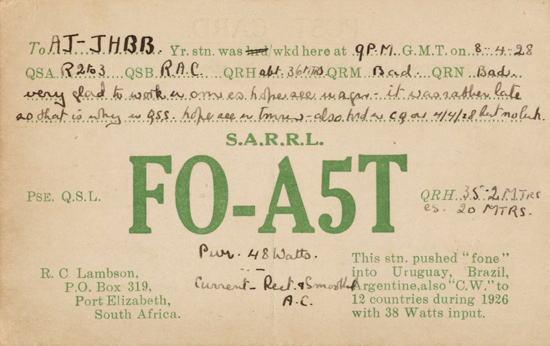 To AJ-JHBB. Yr. stn. was hrd/wkd here at 9 P.M. G.M.T. on 8-4-28
QSA R2to3 QSB R.A.C. QRH abt. 36 MTRS QRM Bad. QRN Bad.
very glad to work u om es hope see u agn - it was rather late
so that is why u QSS. hope see u tmrw - also hrd u CQ on 7/4/28 but no luck.
S.A.R.R.L.
PSE. Q.S.L.
FO-A5T
QRH. 35-2 MTRS
es. 20 MTRS.
Pwr. 48 Watts.
Current - Rect. & Smoothed
A.C.
R. C Lambson,
P.O. Box 319,
Port Elizabeth,
South Africa.
This stn. pushed "fone"
into Uruguay, Brazil,
Argentine, also "C.W." to
12 countries during 1926
with 38 Watts input.